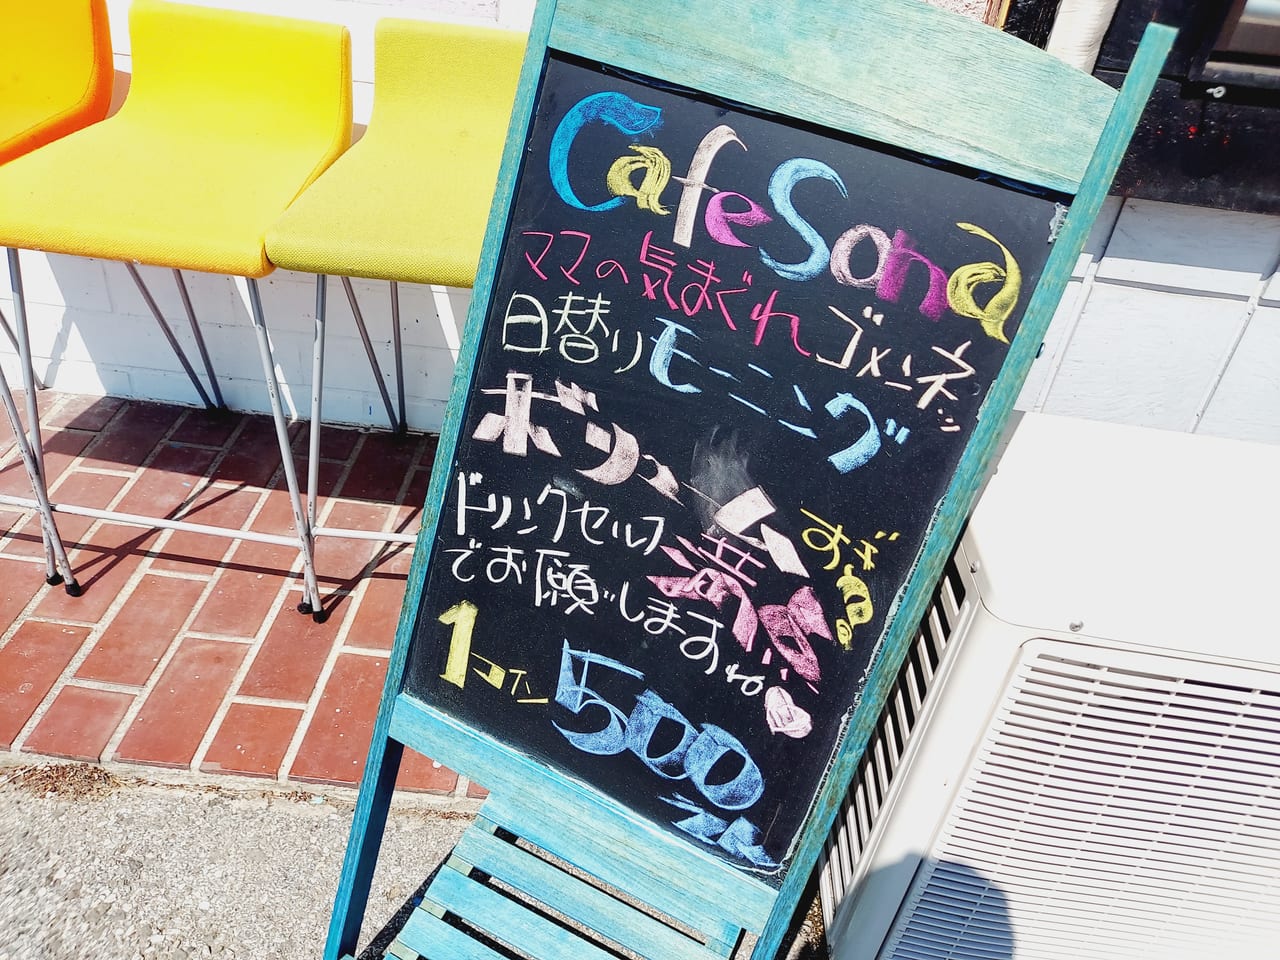 Cafe Sana
ママの気まぐれゴメンネ
日替りモーニング
ボリューム満点すぎる
ドリンクセルフ
でお願いしますね
1コイン500